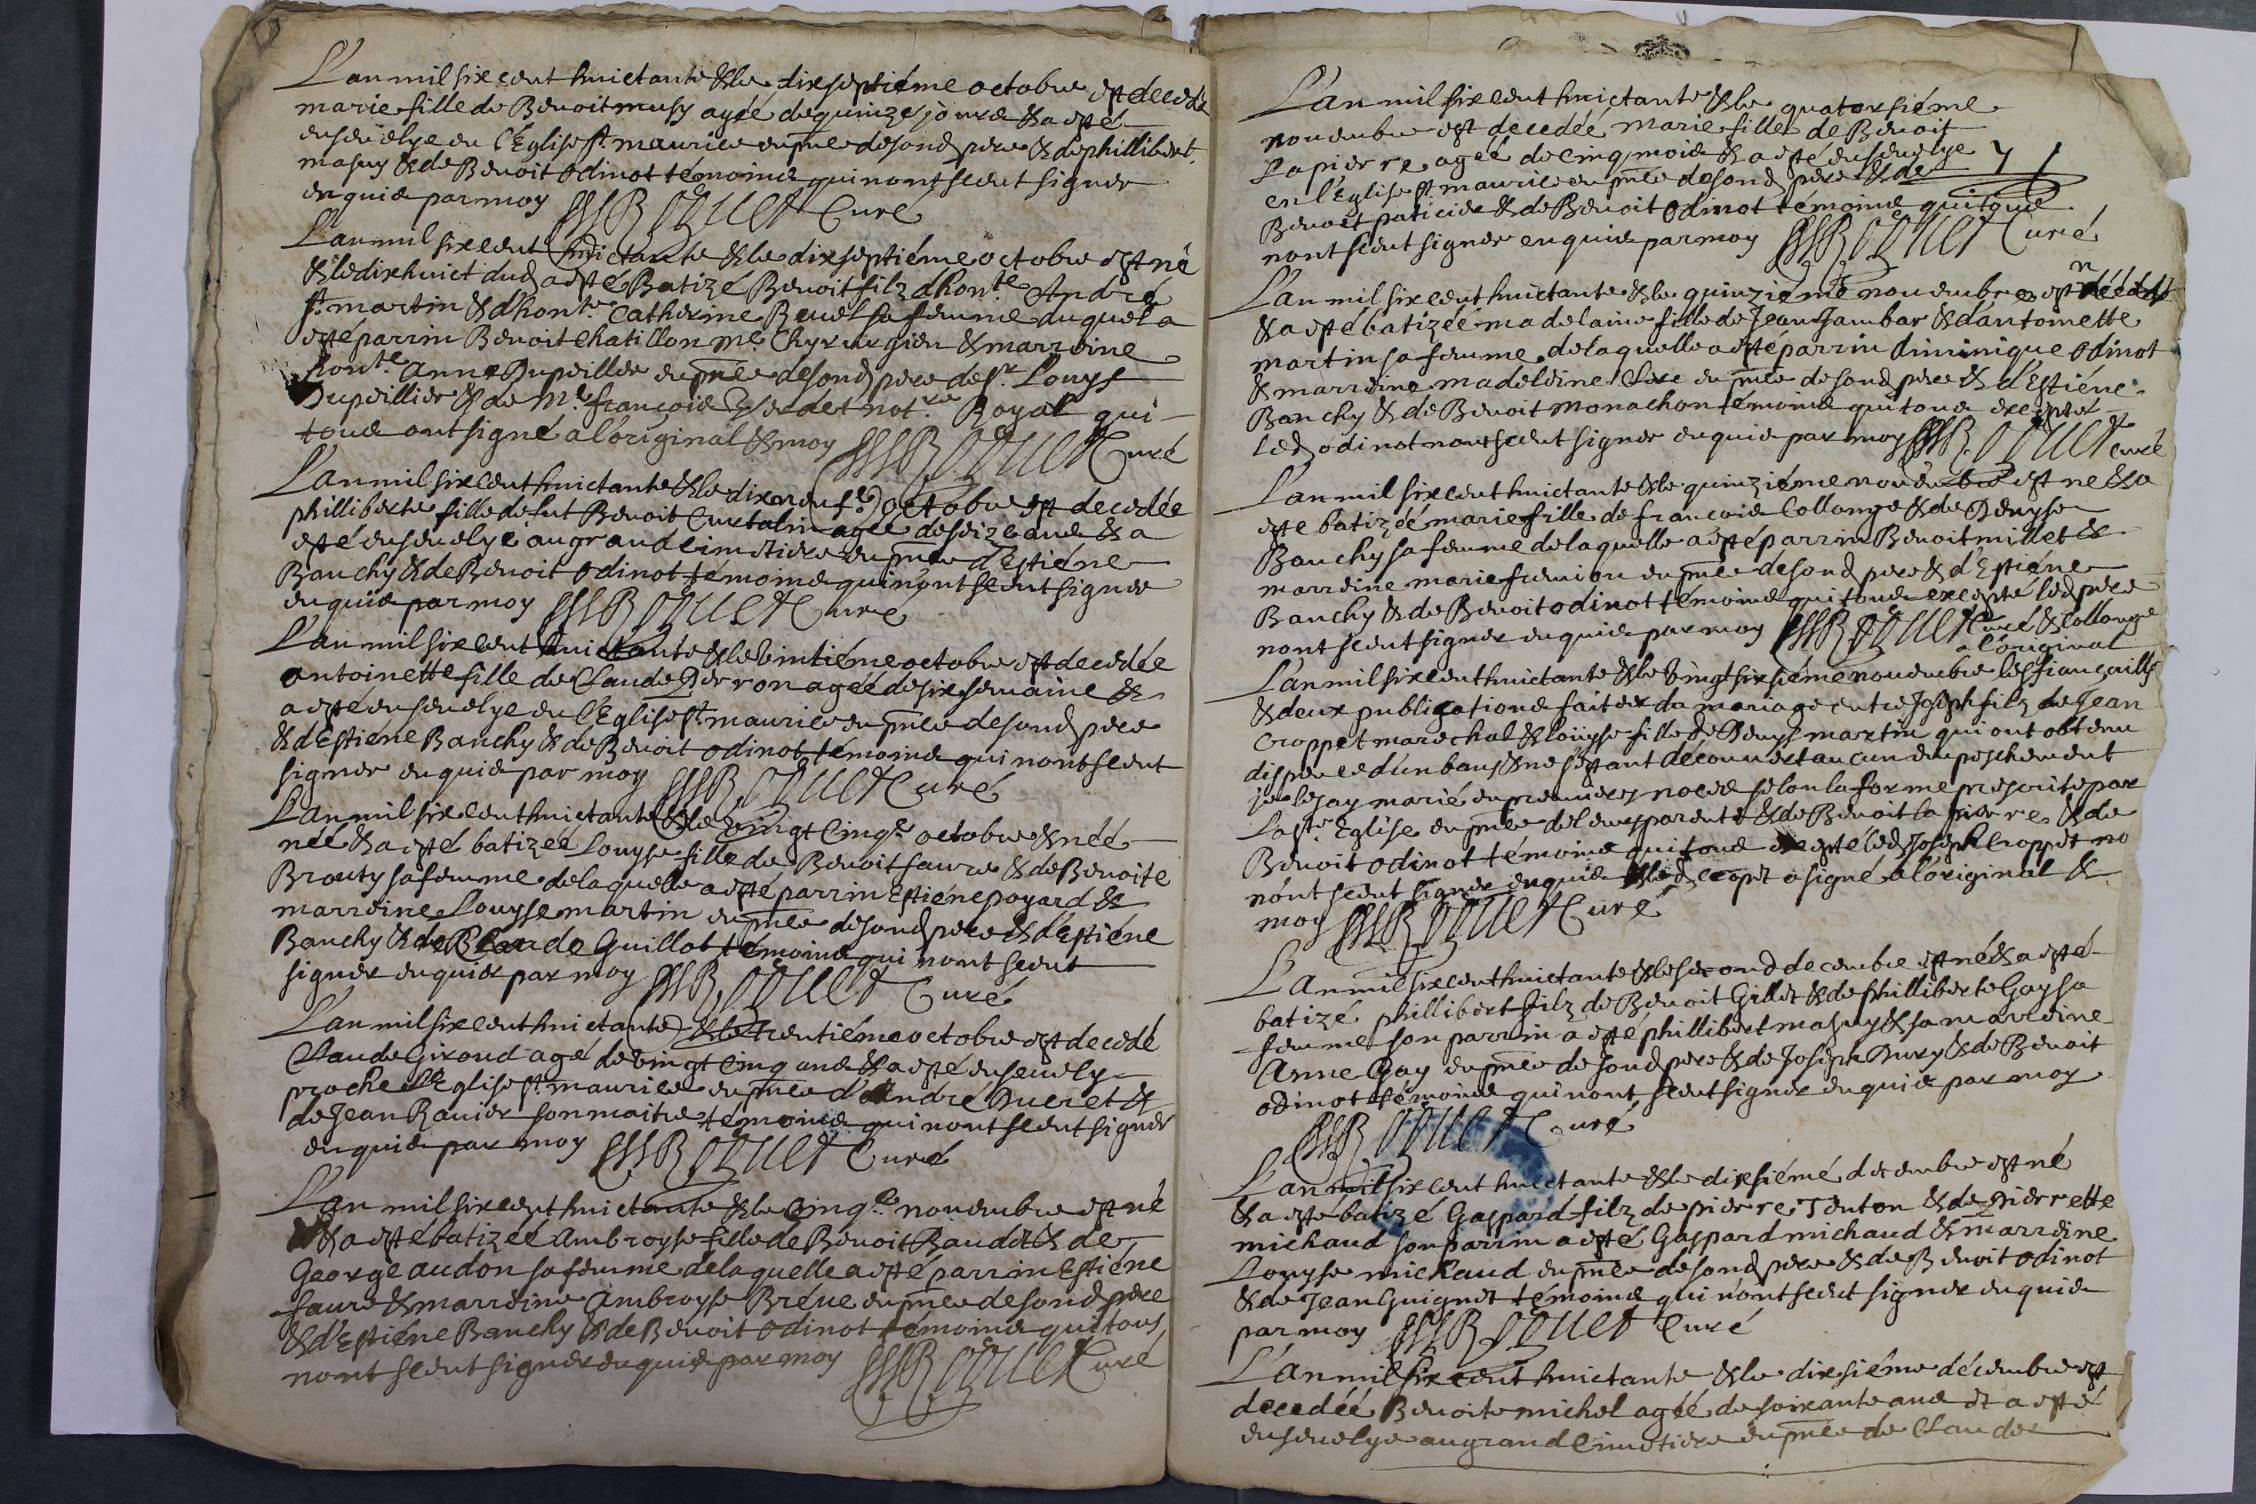 L'an mil six cent huictante & le dixseptiéme octobre est decedé
marie fille de Benoit musy ageé de quinze jours & a esté
ensevelye en l'Eglise st maurice en pnce de sond pere & de phillibert
masuy & de Benoit Odinot témoins qui nont sceut signer
enquis par moy Curé
L'an mil six cent huictante & le dixseptiéme octobre est né
& le dixhuict dud a esté Batizé Benoit filz d'honte André
st martin & d'honte Catherine sa femme duquel a
esté parrin Benoit Chatillon me Chyrurgien & marreine
honte Anne Dupeillier en pnce de sond pere de sr Louys
Dupeillier & de Me françois not.re Royal qui
tous ont signé a l'original & moy Curé
L'an mil six cent huictante & le dixneufe octobre est decedée
philliberte fille de fut Benoit Curtalin agée de seize ans & a
esté ensevelye au grand cimetiere en pnce d'Estiéne
Banchy & de Benoit Odinot témoins qui nont sceut signer
enquis par moy Curé
L'an mil six cent huictante & le vintiéme octobre est decedée
antoinette fille de Claude Perron ageé de six semaine &
a esté ensevelye en l'Eglise st maurice en pnce de sond pere
& d'Estiéne Banchy & de Benoit Odinot témoins qui nont sceut
signer enquis par moy Curé
L'an mil six cent huictante & le vingt Cinqe octobre & neé
neé & a esté batizeé Louyse fille de Benoit faure & de Benoite
Brouty sa femme de laquelle a esté parrin Estiéne poyard &
marreine Louyse martin en pnce de sond pere & d'Estiéne
Banchy & de Claude Guillot témoins qui nont sceut
signer enquis par moy Curé
L'an mil six cent huictante & le trentiéme octobre est decedé
Claude Giroud agé de vingt Cinq ans & a esté ensevely
proche l'Eglise st maurice en pnce d'André Ducret &
de Jean Ravier son maitre témoins qui nont sceut signer
enquis par moy Curé
L'an mil six cent huictante & le Cinqe novembre est né
& a esté batizeé Ambroyse fille de Benoit Baudet & de
George audon sa femme de laquelle a esté parrin Estiéne
faure & marreine Ambroyse Bréve en pnce de sond pere
& d'Estiéne Banchy & de Benoit Odinot témoins qui tous
nont sceut signer enquis par moy Curé
L'an mil six cent huictante & le quatorsiéme
novembre est decedeé marie fille de Benoit
Lapierre ageé de cinq mois & a esté ensevelye
en l'Eglise st maurice en pnce de sond pere & de
Benoit paticier & de Benoit Odinot témoins qui tous
nont sceut signer enquis par moy Curé
L'an mil six cent huictante & le quinziéme novembre est
& a esté batizeé madelaine fille de Jean Jambar & d'antoinette
martin sa femme de laquelle a esté parrin diminique Odinot
& marreine madeleine en pnce de sond pere & d'Estiéne
Banchy & de Benoit Monachon témoins qui tous excepté
led Odinot nont sceut signer enquis par moy curé
L'an mil six cent huictante & le quinziéme novembre est né & a
esté batizeé marie fille de françois Collonge & de Denyse
Banchy sa femme de laquelle a esté parrin Benoit millet &
marreine marie en pnce de sond pere & d'Estiéne
Banchy & de Benoit Odinot témoins qui tous excepté led pere
nont sceut signer enquis par moy Curé & Collonge
a l'original
L'an mil six cent huictante & le vingt sixsiéme novembre les fiançailles
& deux publications faites du mariage entre Joseph filz de Jean
Croppet marechal & loüyse fille de Denys martin qui ont obtenu
dispence d'un bans & ne s'estant découvert aucun empeschement
je les ay marié en premieres noces selon la forme prescrite par
La ste Eglise en pnce de leurs parents & de Benoit la pierre & de
Benoit Odinot témoins qui tous excepté led Joseph Croppet no
nont sceut signer enquis & led Croppet a signé a l'original &
moy Curé
L'an mil six cent huictante & le second decembre est né & a esté
batizé phillibert filz de Benoit Gillet & de philliberte Gay sa
femme son parrin a esté phillibert masuy & sa marreine
Anne Gay en pnce de sond pere & de Joseph Dury & de Benoit
Odinot témoins qui nont sceut signer enquis par moy
Curé
L'an mil six cent huictante & le dixsiémé decembre est né
& a esté batizé Gaspard filz de pierre Tenton & de pierrette
michaud son parrin a esté Gaspard michaud & marreine
Louyse michaud en pnce de sond pere & de Benoit Odinot
& de Jean Guignet témoins qui nont sceut signer enquis
par moy Curé
L'an mil six cent huictante & le dixsiéme décembre est
decedeé Benoite michel ageé de soixante ans et a esté
ensevelye au grand Cimetiere en pnce de Claude